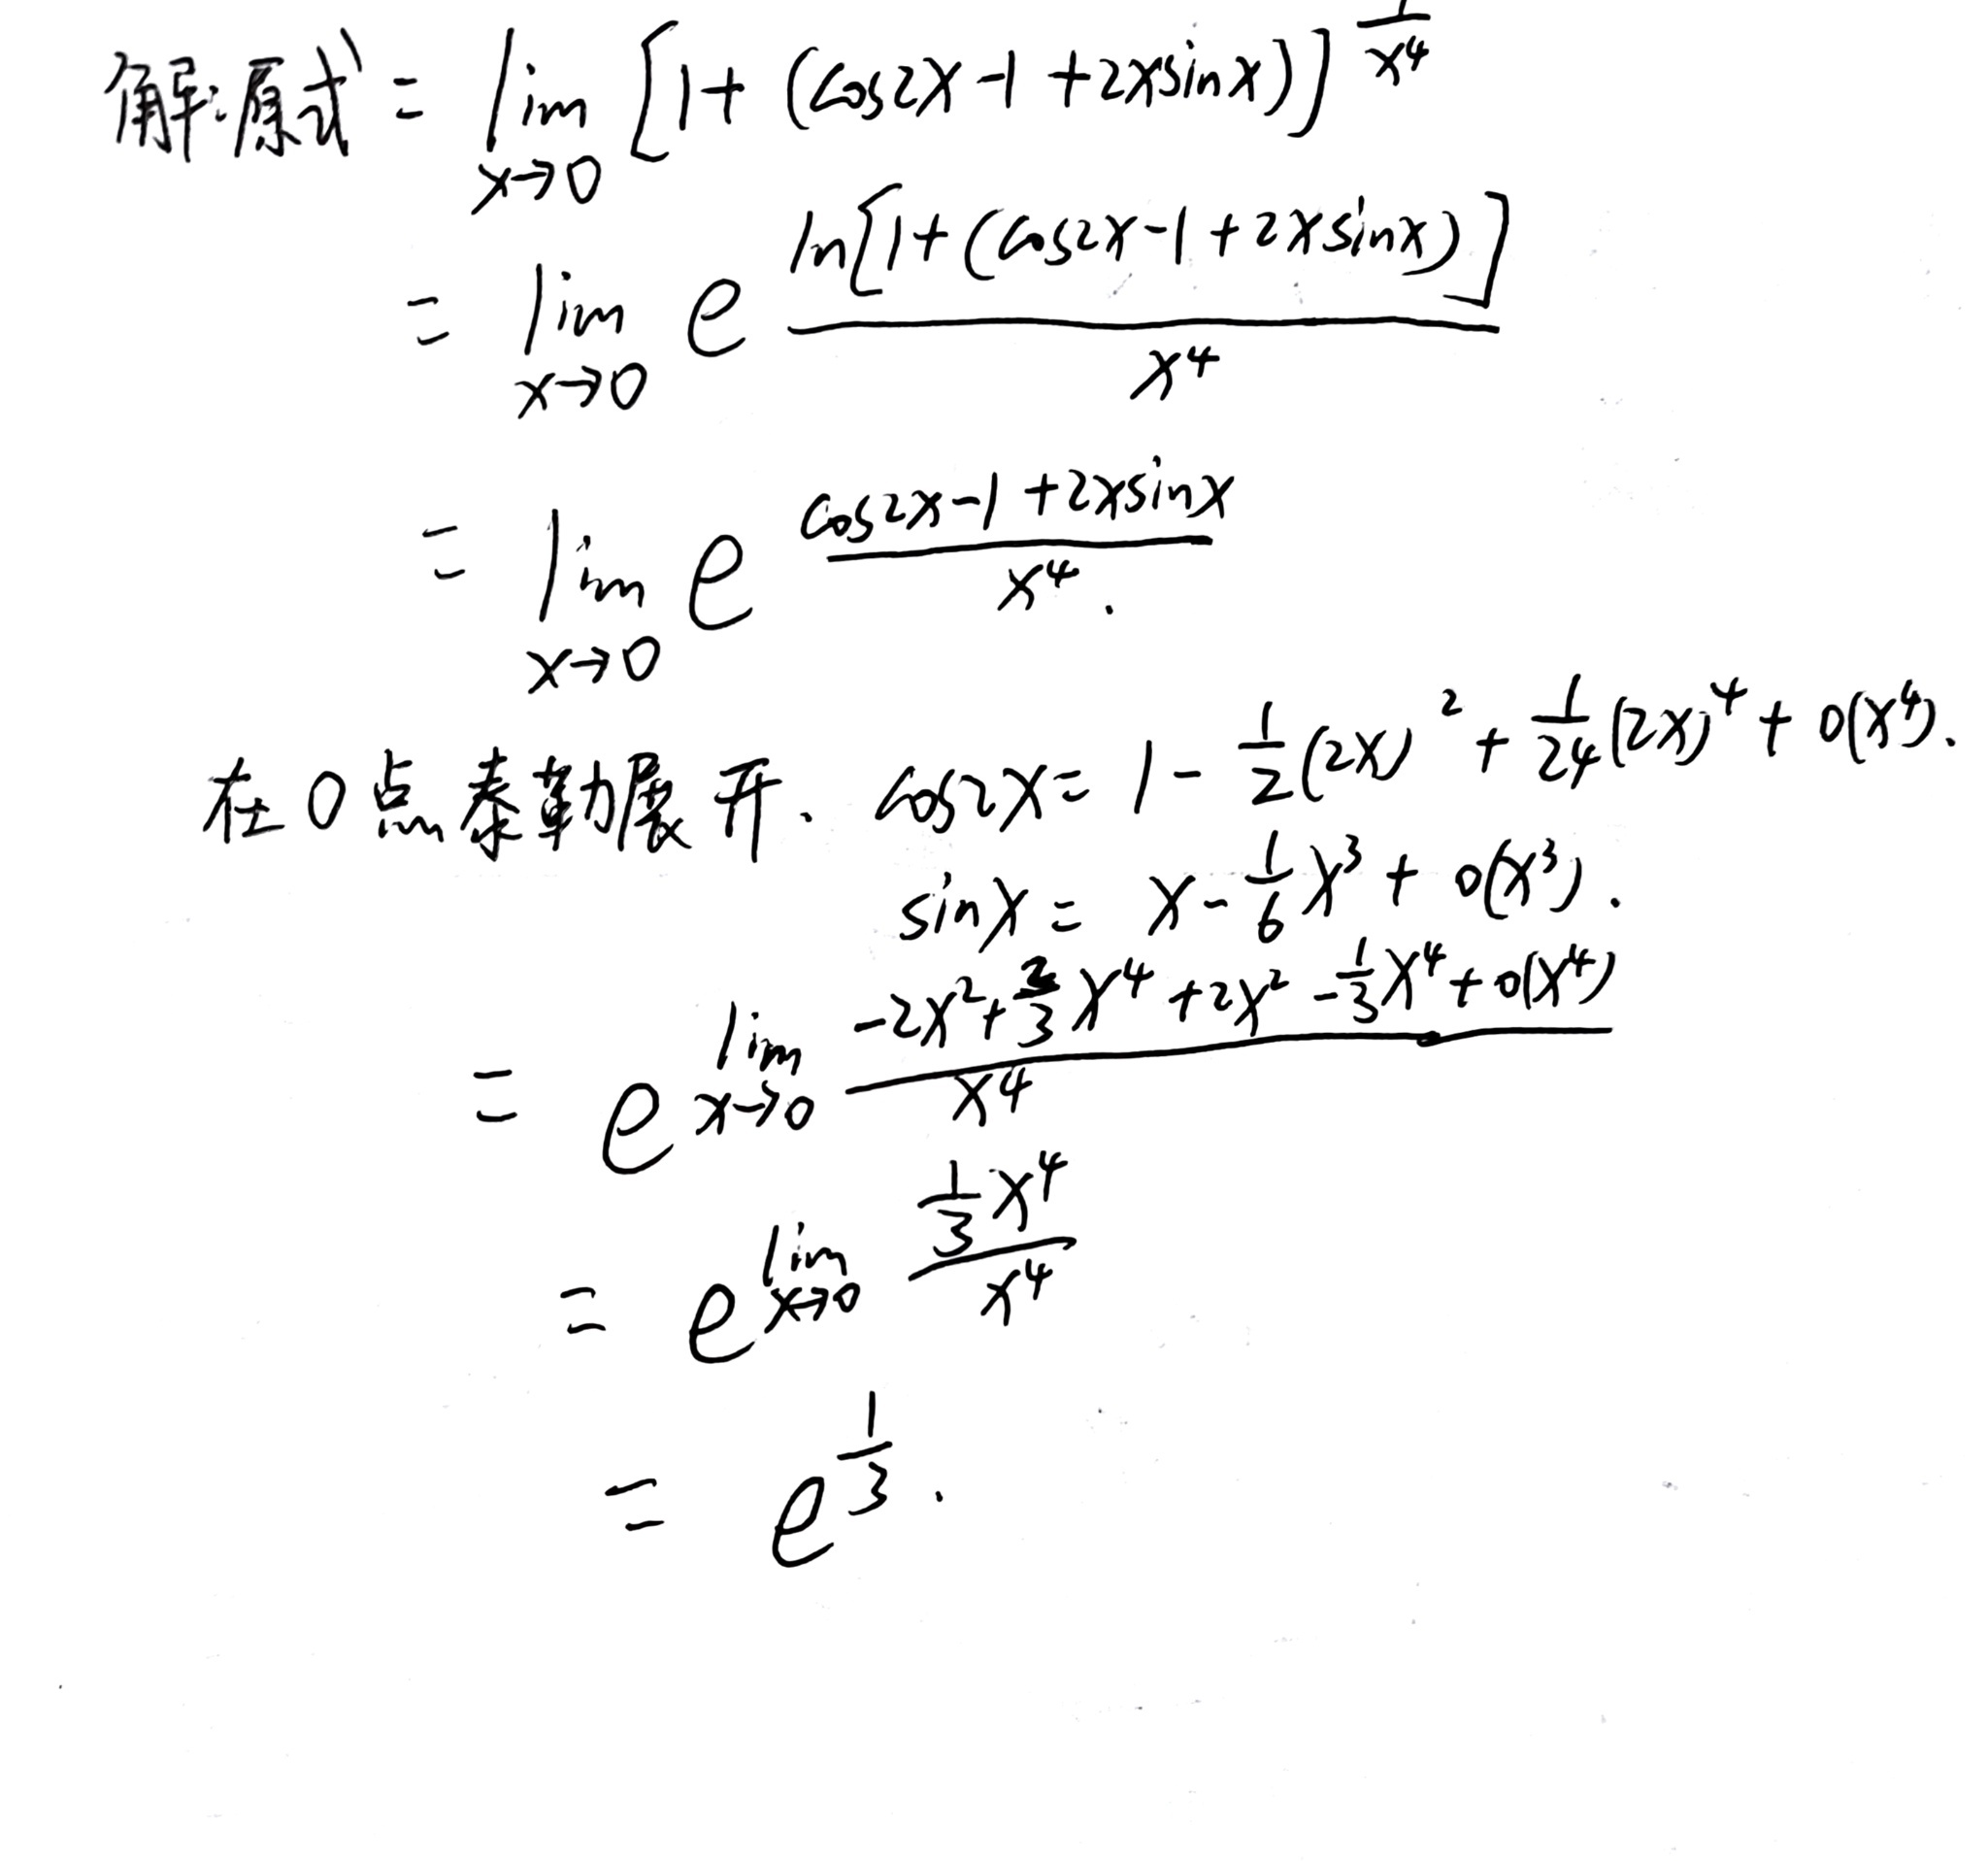 解:原式 = lim x→0 [1+ (cos2x-1+2xsinx)]^(1/x⁴)
= lim x→0 e^(ln[1+(cos2x-1+2xsinx)]/x⁴)
= lim x→0 e^((cos2x-1+2xsinx)/x⁴).
在0点泰勒展开. cos2x= 1-1/2(2x)²+1/24(2x)⁴+o(x⁴).
sinx= x-1/6x³+o(x³).
= e^(lim x→0 (-2x²+2/3x⁴+2x²-1/3x⁴+o(x⁴))/x⁴)
= e^(lim x→0 (1/3x⁴)/x⁴)
= e^(1/3).